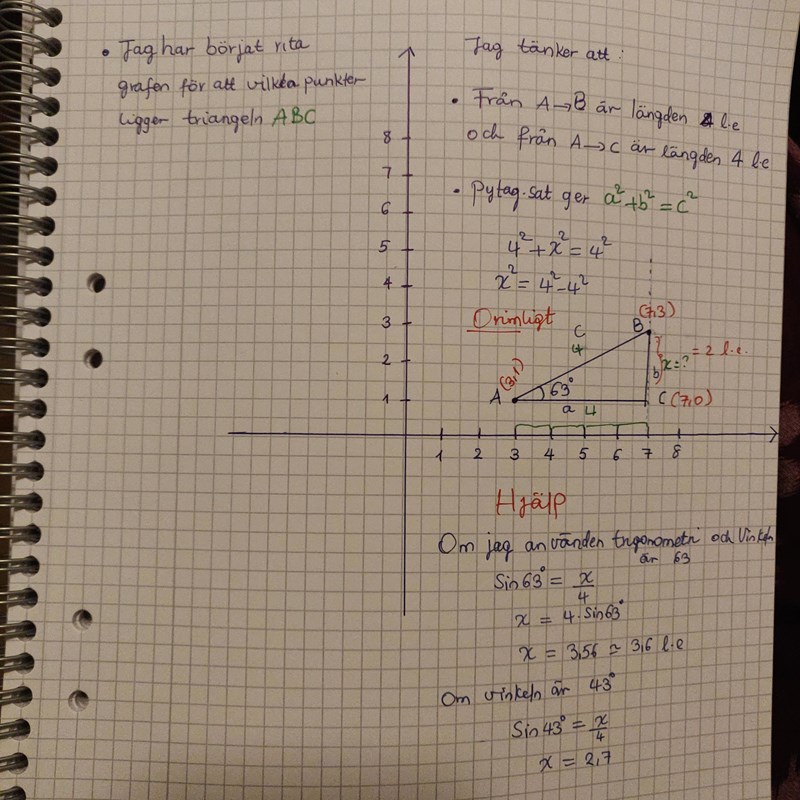 • Jag har börjat rita
grafen för att vilkta punkter
ligger triangeln ABC
Jag tänker att :
• Från A→B är längden 4 l.e
och från A→C är längden 4 l.e
• Pytag.sat ger a² + b² = c²
4² + x² = 4²
x² = 4² - 4²
Orimligt
8
7
6
5
4
3
2
1
C
4
B
(7,3)
x = ?
= 2 l.e.
b
A
(3,1)
63°
a 4
C (7,0)
1 2 3 4 5 6 7 8
Hjälp
Om jag använden trigonometri och Vinkeln
är 63
Sin63° = x/4
x = 4·Sin63°
x = 3,56 ≃ 3,6 l.e
Om vinkeln är 43°
Sin43° = x/4
x = 2,7